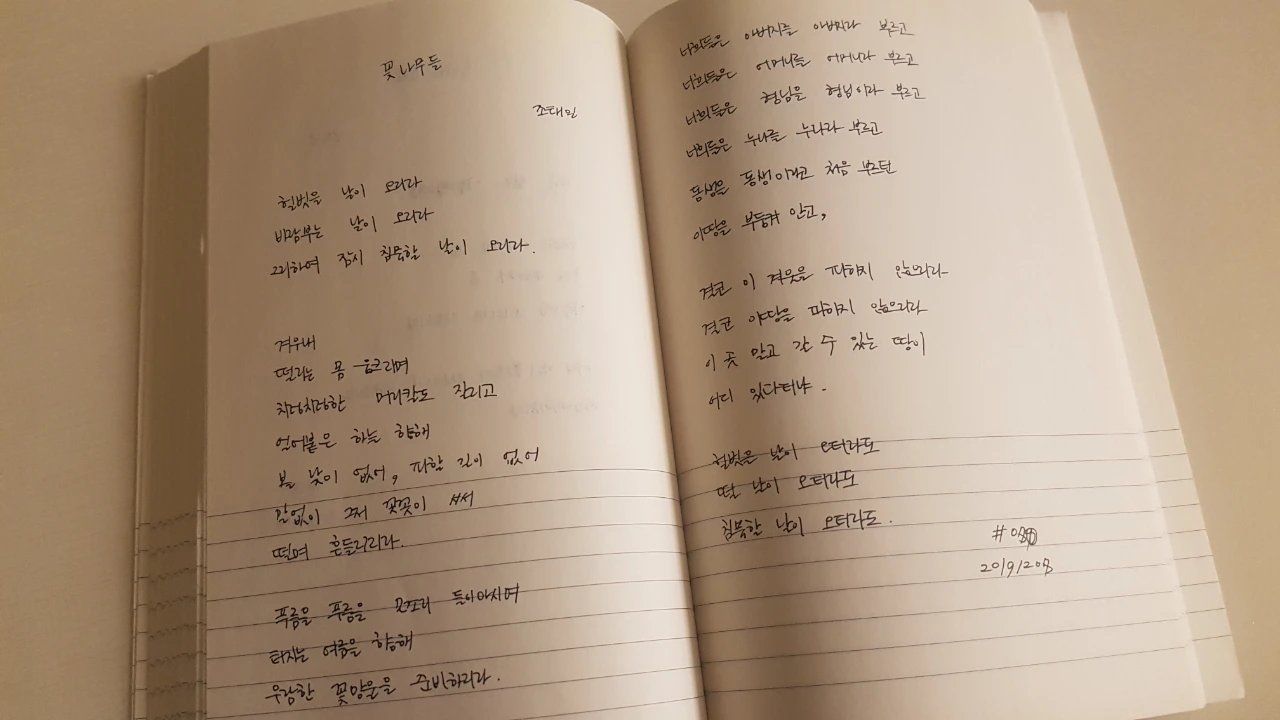 꽃나무들
조태일
헐벗을 날이 오리라
바람부는 날이 오리라
그리하여 잠시 침묵할 날이 오리라.
겨우내
떨리는 몸 웅크리며
치렁치렁한 머리칼도 잘리고
얼어붙은 하늘 향해
볼 낯이 없어, 피할 길이 없어
말없이 그저 꼿꼿이 서서
떨며 흔들리리라.
푸름을 푸름을 모조리 들이마시며
터지는 여름을 향해
우람한 꽃망울을 준비하리라.
너희들은 아버지를 아버지라 부르고
너희들은 어머니를 어머니라 부르고
너희들은 형님을 형님이라 부르고
너희들은 누나를 누나라 부르고
동생을 동생이라고 처음 부르던
이땅을 부둥켜 안고,
결코 이 겨울을 피하지 않으리라
결코 이땅을 피하지 않으리라
이 곳 말고 갈 수 있는 땅이
어디 있다더냐.
헐벗은 날이 오더라도
떨 날이 오더라도
침묵할 날이 오더라도.
20191208